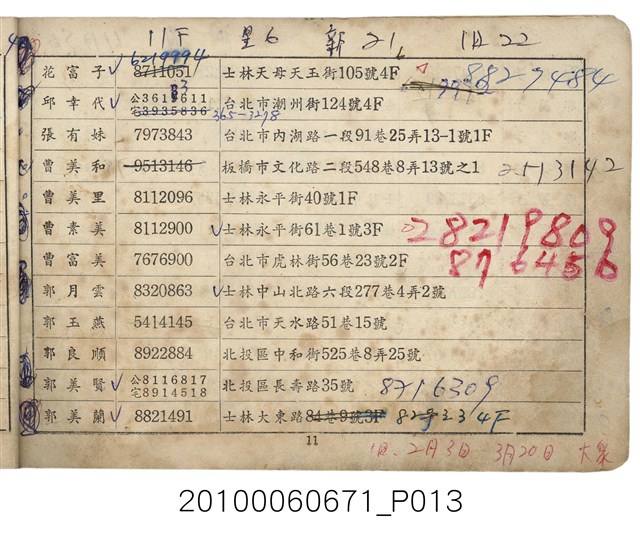 11F 星6 新21 1月22
6219994
花富子 8711051 士林天母天玉街105號4F 8827484
邱幸代 公3616611 宅3935836 台北市潮州街124號4F
365-3278
張有妹 7973843 台北市內湖路一段91巷25弄13-1號1F
曹美和 9513146 板橋市文化路二段548巷8弄13號之1 2513142
曹美里 8112096 士林永平街40號1F
曹素美 8112900 士林永平街61巷1號3F 28219809
曹富美 7676900 台北市虎林街56巷23號2F 876456
郭月雲 8320863 士林中山北路六段277巷4弄2號
郭玉燕 5414145 台北市天水路51巷15號
郭良順 8922884 北投區中和街525巷8弄25號
郭美賢 公8116817 宅8914518 北投區長壽路35號 8716309
郭美蘭 8821491 士林大東路84巷9號3F 4F
11
2月3日 3月20日
20100060671_P013